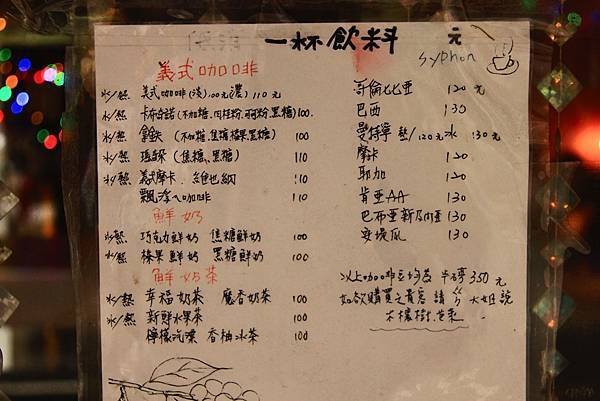 一杯飲料 元
syphon
義式咖啡
冰/熱 義式咖啡(淡)100元(濃)110元
冰/熱 卡布奇諾(不加糖.肉桂粉.可可粉.黑糖)100.
冰/熱 拿鐵(不加糖.焦糖榛果.黑糖) 100
冰/熱 瑪朵(焦糖、黑糖) 110
冰/熱 義式摩卡、維也納 110
飄浮咖啡 110
鮮奶
冰/熱 巧克力鮮奶 焦糖鮮奶 100
冰/熱 榛果鮮奶 黑糖鮮奶 100
鮮奶茶
冰/熱 幸福奶茶 魔香奶茶 100
冰/熱 新鮮水果茶 100
檸檬汽水 香柚冰茶 100
哥倫比亞 120元
巴西 130
曼特寧 熱/120元冰 130元
摩卡 120
耶加 120
肯亞AA 130
巴布亞新几內亞 130
安堤瓜 130
以上咖啡豆均為半磅350元
如欲購買之貴客請 大姐說
木橡樹.芭東